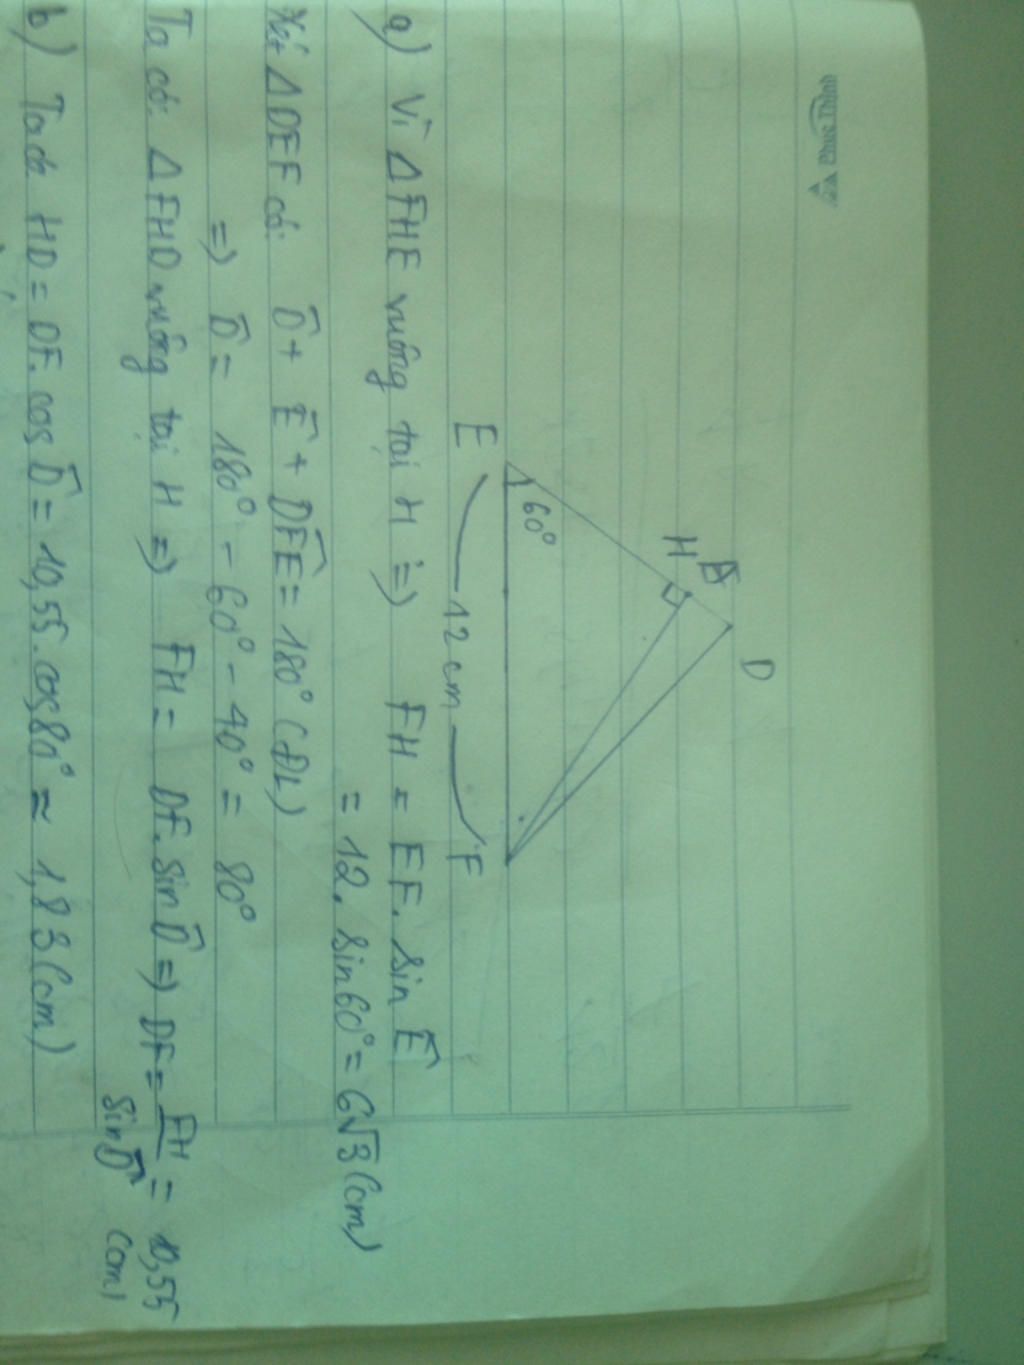 Phúc Thịnh
D
H
60°
E
12 cm
F
a) Vì Δ FHE vuông tại H => FH = EF. sin Ê
= 12. sin60° = 6√3 (cm)
Xét Δ DEF có: D̂ + Ê + DF̂E = 180° (ĐL)
=> D̂ = 180° - 60° - 40° = 80°
Ta có: Δ FHD vuông tại H => FH = DF. sin D̂ => DF = FH / sin D̂ = 10,55 (cm)
b) Ta có HD = DF. cos D̂ = 10,55. cos80° ≈ 1,83 (cm)